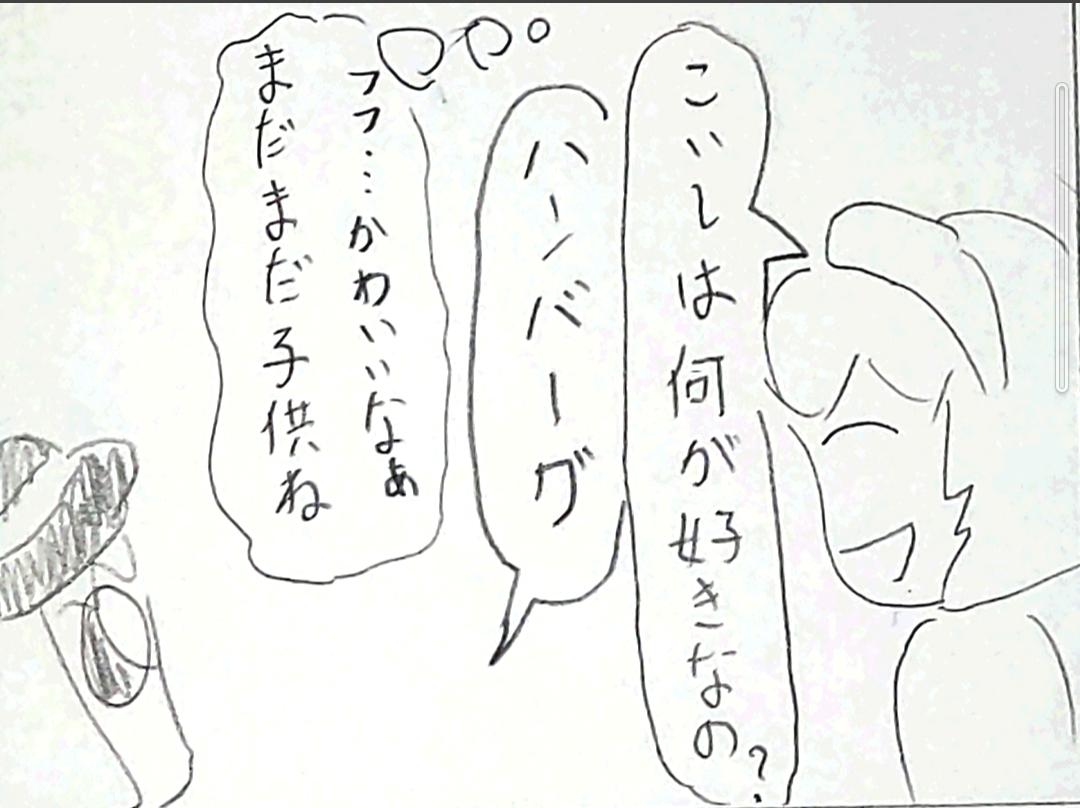 こいしは何が好きなの?
ハンバーグ
フフ……かわいいなぁ
まだまだ子供ね